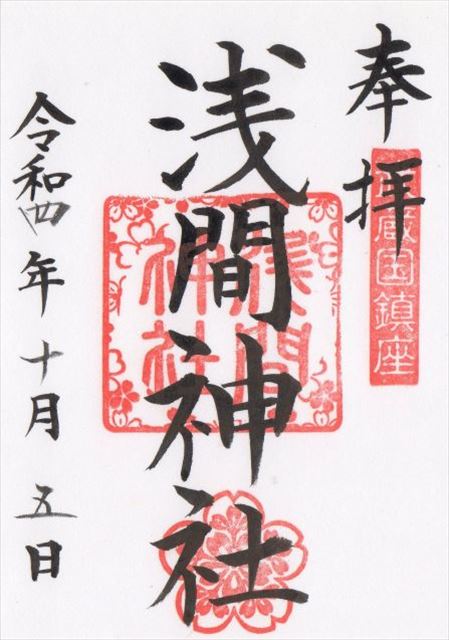 奉拝
武蔵国鎮座
浅間神社
浅間神社
令和四年十月五日